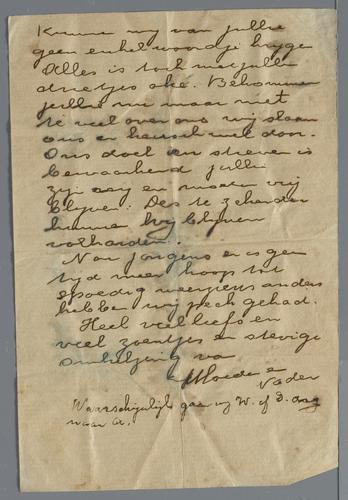 Kunnen wij van jullie
geen enkel woordje krijgen
Alles is toch met jullie
drietjes oké. Bekommer
jullie nu maar niet
te veel over ons wij slaan
ons er heusch wel door.
Ons doel en streven is
bewaarheid jullie
zijn en moeten vrij
blijven. Des te
kunnen wij blijven
volharden.
Nou jongens er is geen
tijd meer hoop tot
spoedig weerziens anders
hebben wij pech gehad.
Heel veel liefs en
veel zoentjes en stevige
omhelzing van
Moeder en
Vader
Waarschijnlijk gaan wij W. of D.
naar A.